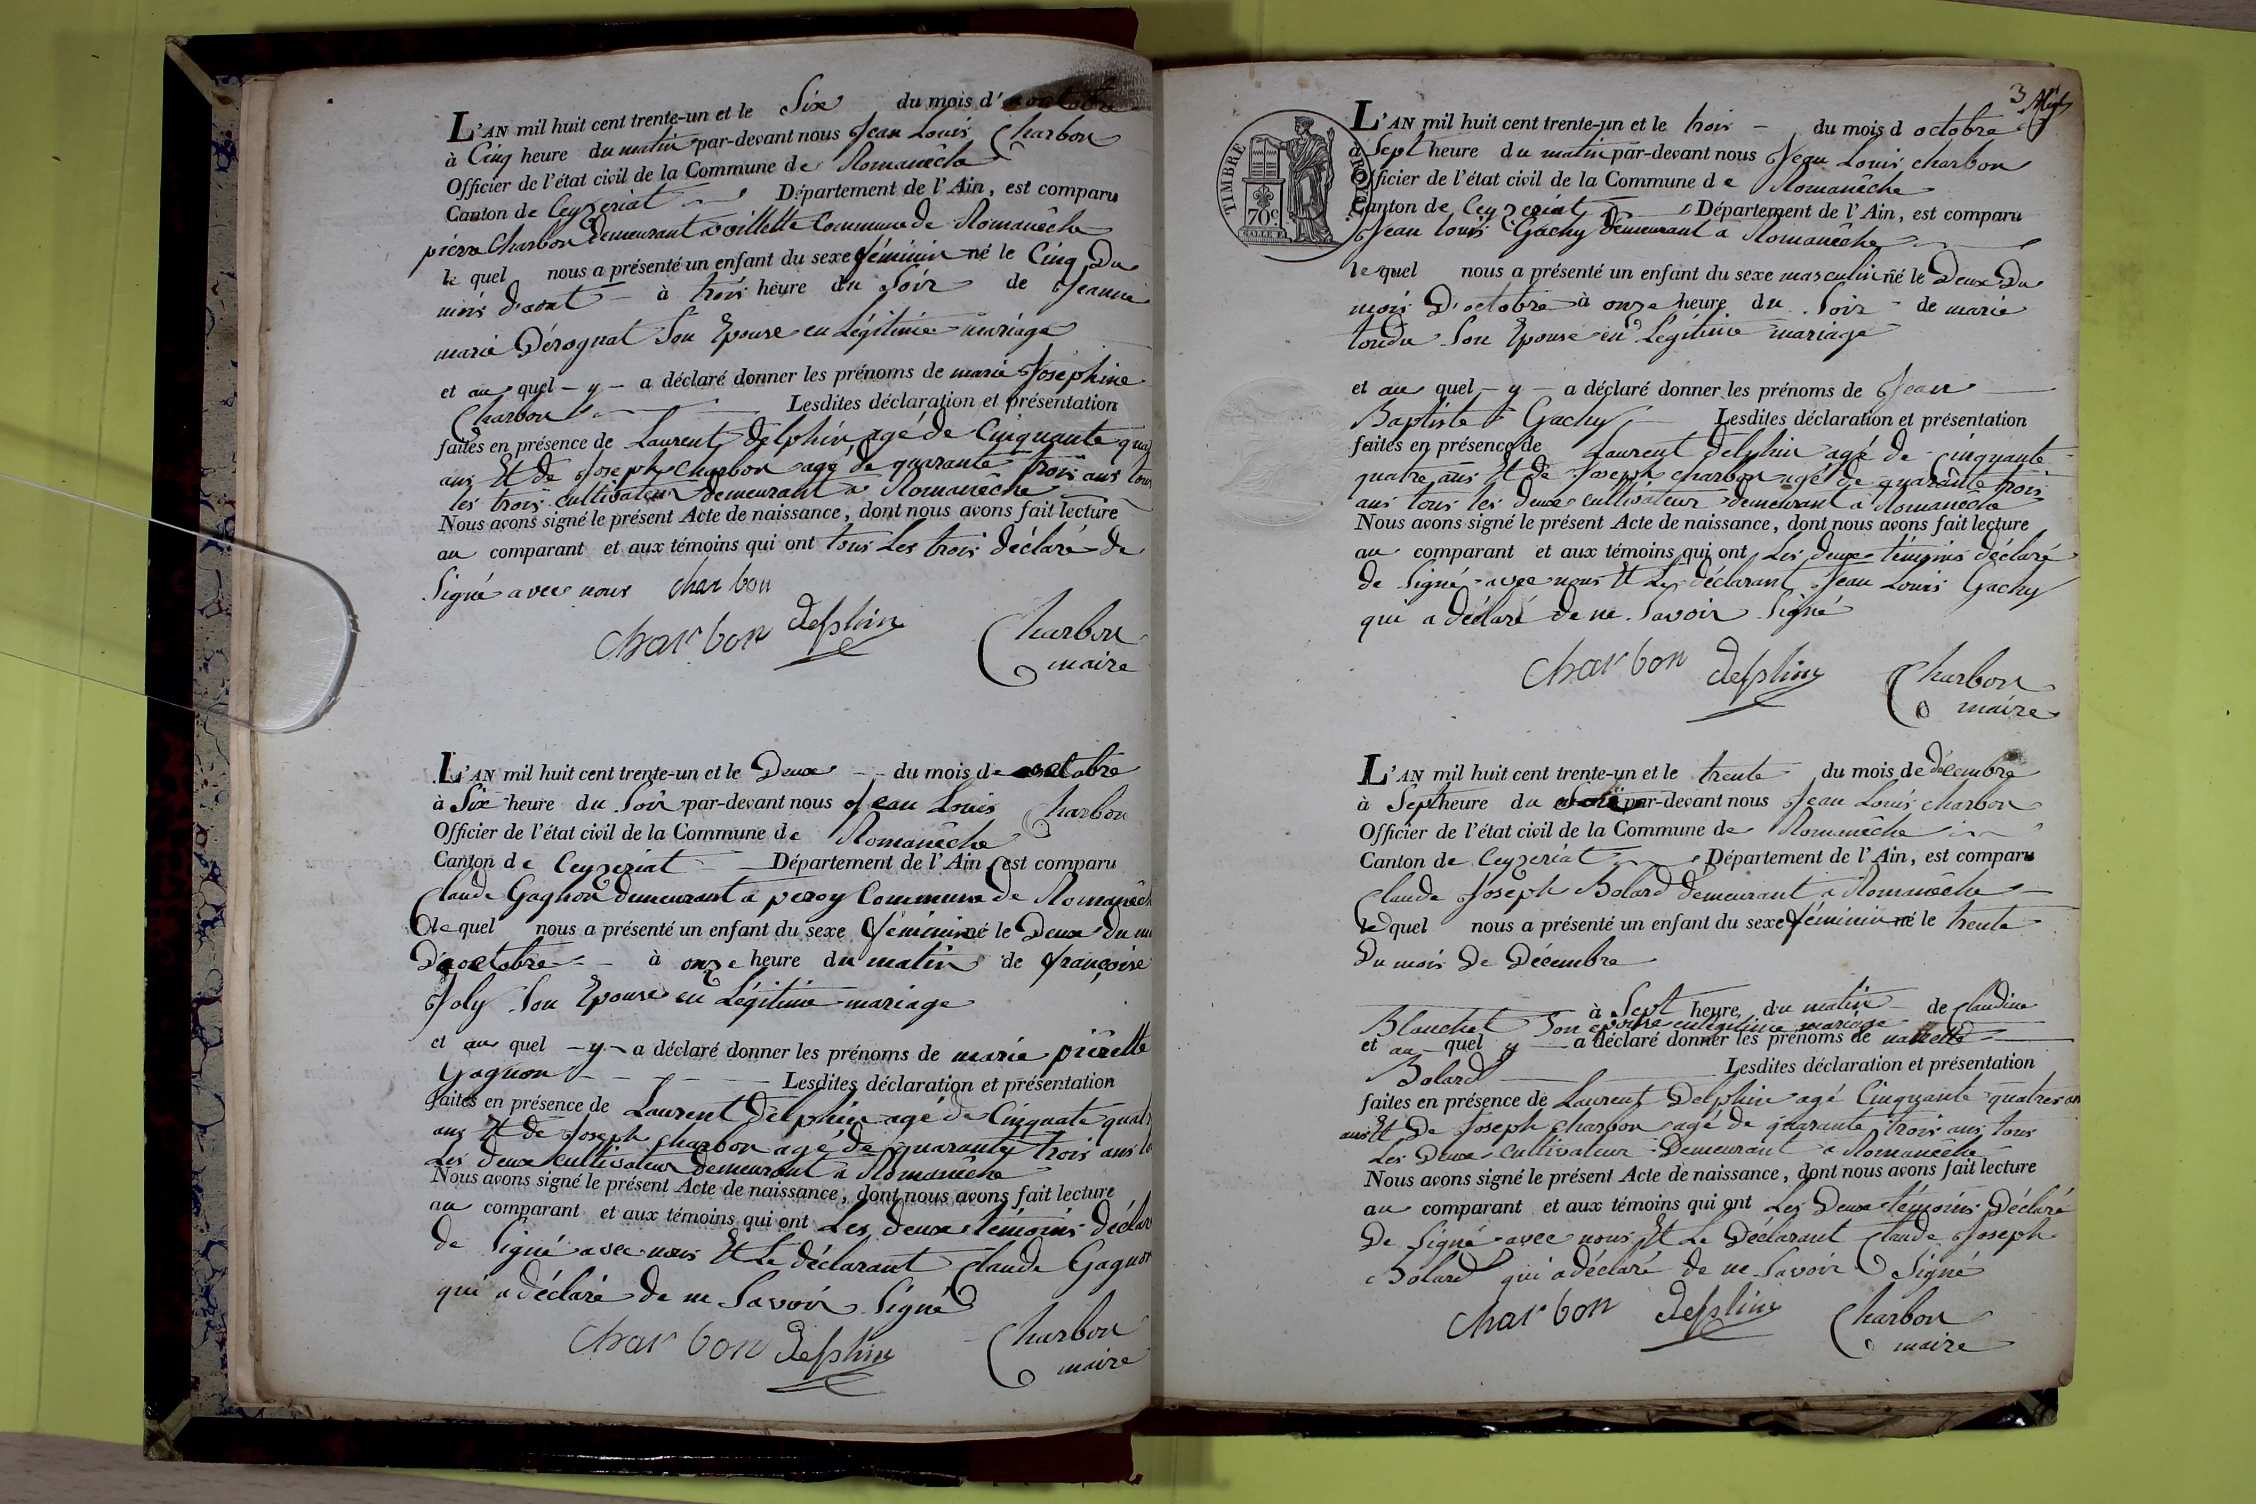 L'AN mil huit cent trente-un et le Six du mois d'
à Cinq heure du matin par-devant nous Jean Louis Charbon
Officier de l'état civil de la Commune de Romanêche
Canton de Ceyzeriat Département de l'Ain, est comparu
pierre Charbon demeurant a villette Commune de Romanêche
le quel nous a présenté un enfant du sexe féminin né le Cinq Du
mois d'aout à trois heure du Soir de Jeanne
marie Dérognat Son Epouse en Légitime mariage
et au quel - y - a déclaré donner les prénoms de marie Josephine
Charbon Lesdites déclaration et présentation
faites en présence de Laurent Delphin agé de Cinquante qua
ans Et de Joseph Charbon agé de quarante trois ans tous
les trois cultivateur demeurant a Romanêche
Nous avons signé le présent Acte de naissance, dont nous avons fait lecture
au comparant et aux témoins qui ont tous Les trois déclaré de
Signé avec nous charbon
charbon delphin Charbon
maire
L'AN mil huit cent trente-un et le Deux du mois de octobre
à Six heure du Soir par-devant nous Jean Louis Charbon
Officier de l'état civil de la Commune de Romanêche
Canton de Ceyzeriat Département de l'Ain, est comparu
Claude Gagnon demeurant a peroy Commune de Romanêch
le quel nous a présenté un enfant du sexe féminin né le Deux du m
D'octobre à onze heure du matin de françoise
Joly Son Epouse en Légitime mariage
et au quel - y - a déclaré donner les prénoms de marie pierette
Gagnon Lesdites déclaration et présentation
faites en présence de Laurent Delphin agé de Cinquate quatr
ans Et de Joseph Charbon agé de quarante trois ans to
Les deux cultivateur demeurant a Romanêche
Nous avons signé le présent Acte de naissance, dont nous avons fait lecture
au comparant et aux témoins qui ont Les deux témoins déclar
de Signé avec nous Et Le déclarant Claude Gagnon
qui a déclaré de ne Savoir Signé
charbon delphin Charbon
maire
3
TIMBRE ROYAL
70c
L'AN mil huit cent trente-un et le trois du mois d octobre
à Sept heure du matin par-devant nous Jean Louis charbon
Officier de l'état civil de la Commune de Romanêche
Canton de Ceyzeriat Département de l'Ain, est comparu
Jean louis Gachy demeurant a Romanêche
le quel nous a présenté un enfant du sexe masculin né le Deux Du
mois D'octobre à onze heure du Soir de marie
tondu Son Epouse en Legitime mariage
et au quel - y - a déclaré donner les prénoms de Jean
Baptiste Gachy Lesdites déclaration et présentation
faites en présence de Laurent delphin agé de cinquante
quatre ans Et de Joseph charbon agé de quarante trois
ans tous les deux cultivateur demeurant a Romanêche
Nous avons signé le présent Acte de naissance, dont nous avons fait lecture
au comparant et aux témoins qui ont Les deux témoins déclaré
de Signé avec nous Et Le déclarant Jean Louis Gachy
qui a déclaré de ne Savoir Signé
charbon delphin Charbon
maire
L'AN mil huit cent trente-un et le trente du mois de décembre
à Sept heure du par-devant nous Jean Louis charbon
Officier de l'état civil de la Commune de Romanêche
Canton de Ceyzeriat Département de l'Ain, est comparu
Claude Joseph Bolard demeurant a Romanêche
le quel nous a présenté un enfant du sexe féminin né le trente
Du mois De Décembre
à Sept heure du matin de Claudine
Blanchet Son epouse en légitime mariage
et au quel y a déclaré donner les prénoms de
Bolard Lesdites déclaration et présentation
faites en présence de Laurent Delphin agé Cinquante quatres an
ans Et De Joseph charbon agé de quarante trois ans tous
Les Deux Cultivateur Demeurant a Romanêche
Nous avons signé le présent Acte de naissance, dont nous avons fait lecture
au comparant et aux témoins qui ont Les Deux témoins Déclaré
De Signé avec nous Et Le Déclarant Claude Joseph
Bolard qui a déclaré de ne Savoir Signé
charbon delphin Charbon
maire